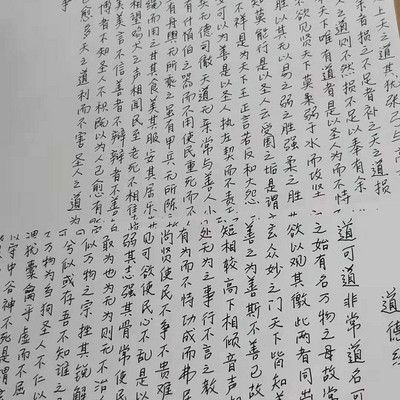 天之道其犹张弓与高
余者损之不足者补之天之道损
天之道则不然损不足以奉有余
天下唯有道者是以圣人为而不恃
欲见贤天下莫柔弱于水而攻坚
胜以其无以易之弱之胜强柔之胜
知莫能行是以圣人云受国之垢是谓
不祥是为天下王正言若反和大怨
可以为善是以圣人执左契而不责
无德司彻天道无亲常与善人小
有什伯之器而不用使民重死而
舟舆无所乘之虽有甲兵无所陈
绳而用之甘其食美其服安其居乐
相望鸡犬之声相闻民至老死不相
美美言不信善者不辩辩者不善
博者不知圣人不积既以为人己愈有
己愈多天之道利而不害圣人之道为
争
道德经
道可道非常道名可
之始有名万物之母故常
欲以观其徼此两者同出
玄众妙之门天下皆知美
善之为善斯不善已故
短相较高下相倾音声
处无为之事行不言之教
有而不恃功成而弗居
尚贤使民不争不贵难
见可欲使民心不乱是以
弱其志强其骨常使民
敢为也为无为则无不治
似万物之宗挫其锐解
兮似或存吾不知谁之
万物为刍狗圣人不仁以
犹橐龠乎虚而不屈
以守中谷神不死是谓